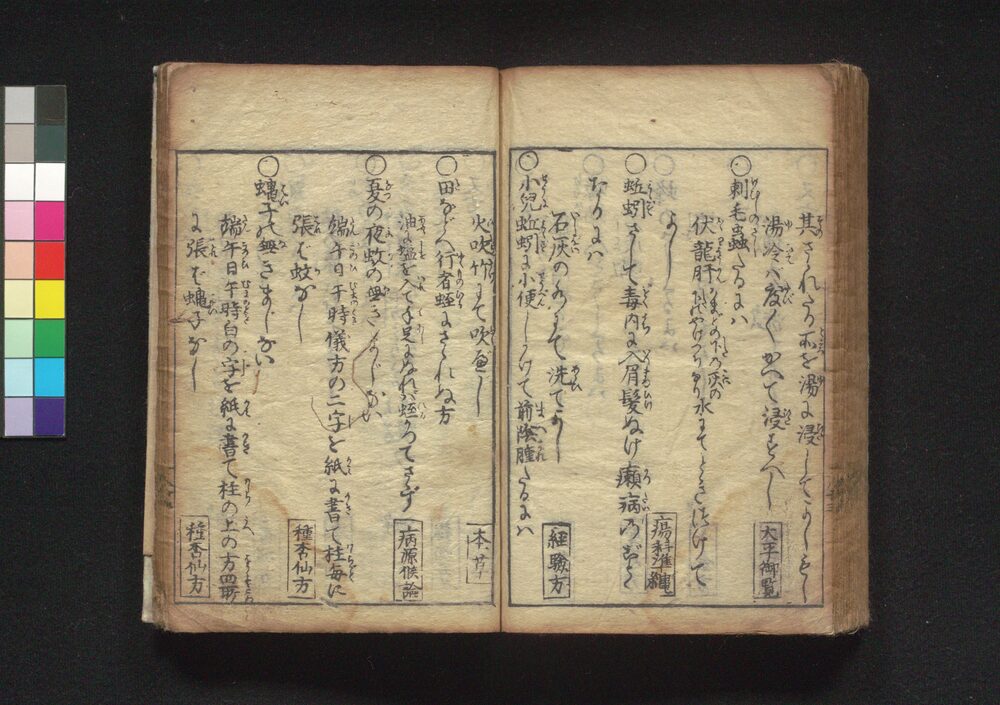 其さされたる所を湯に浸してよしもし
湯冷ハ度々かへて浸すべし
大平御覧
○刺毛虫さしたるにハ
伏龍肝 水にてときつけて
よし
瘍科準縄
○蚯蚓さして毒内に入眉髪ぬけ癩病のごとく
なるにハ
石灰の水にて洗てよし
経験方
○小児蚯蚓に小便しかけて前陰腫たるにハ
火吹竹にて吹べし
本草
○田などへ行者蛭にさされぬ方
油に塩を入て手足にぬれハ蛭かつてささず
病源候論
○夏の夜蚊の無きまじない
端午日午時儀方の二字を紙に書て柱毎に
張ば蚊なし
種杏仙方
○蠅子の無きまじない
端午日午時白の字を紙に書て柱の上の方四所
に張ば蠅子なし
種杏仙方